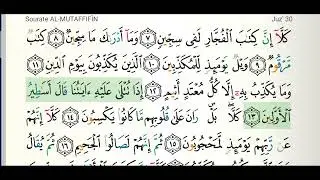 Sourate AL-MUTAFFIFÎN Juz' 30
كَلَّآ إِنَّ كِتَٰبَ ٱلْفُجَّارِ لَفِى سِجِّينٍ ٧ وَمَآ أَدْرَىٰكَ مَا سِجِّينٌ ٨ كِتَٰبٌ
مَّرْقُومٌ ٩ وَيْلٌ يَوْمَئِذٍ لِّلْمُكَذِّبِينَ ١٠ ٱلَّذِينَ يُكَذِّبُونَ بِيَوْمِ ٱلدِّينِ ١١
وَمَا يُكَذِّبُ بِهِۦٓ إِلَّا كُلُّ مُعْتَدٍ أَثِيمٍ ١٢ إِذَا تُتْلَىٰ عَلَيْهِ ءَايَٰتُنَا قَالَ أَسَٰطِيرُ
ٱلْأَوَّلِينَ ١٣ كَلَّا ۖ بَلْ ۜ رَانَ عَلَىٰ قُلُوبِهِم مَّا كَانُوا۟ يَكْسِبُونَ ١٤ كَلَّآ إِنَّهُمْ
عَن رَّبِّهِمْ يَوْمَئِذٍ لَّمَحْجُوبُونَ ١٥ ثُمَّ إِنَّهُمْ لَصَالُوا۟ ٱلْجَحِيمِ ١٦ ثُمَّ يُقَالُ